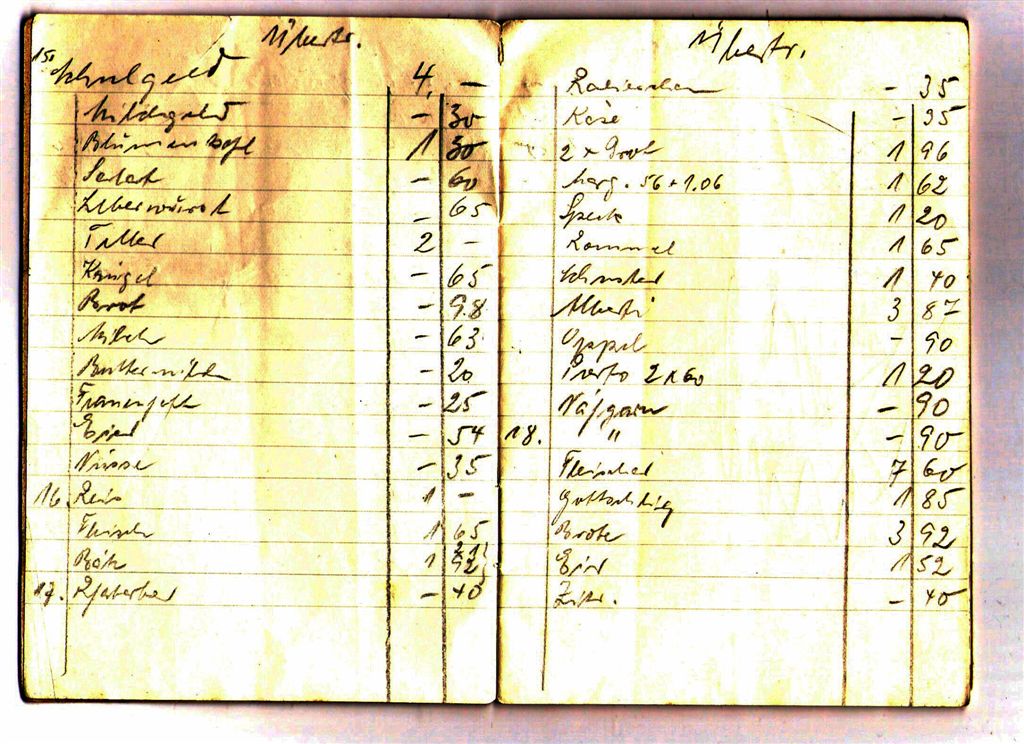 Übertr.
15. Schulgeld 4. -
Milchgeld - 30
Blumenkohl 1 30
Salat - 60
Leberwurst - 65
Teller 2 -
- 65
Brot - 98
Milch - 63
Buttermilch - 20
- 25
Eier - 54
Nüsse - 35
16. Reis 1 -
Fleisch 1 65
1 92
17. Rhabarber - 40
Übertr.
Radieschen - 35
Käse - 35
2 x Brot 1 96
Marg. 56 + 1.06 1 62
Speck 1 20
1 65
Schuster 1 40
Alberti 3 87
Oppel - 90
Porto 2 x 60 1 20
Nähgarn - 90
18. " - 90
Fleischer 7 60
Gottschling 1 85
Brote 3 92
Eier 1 52
Zitr. - 40